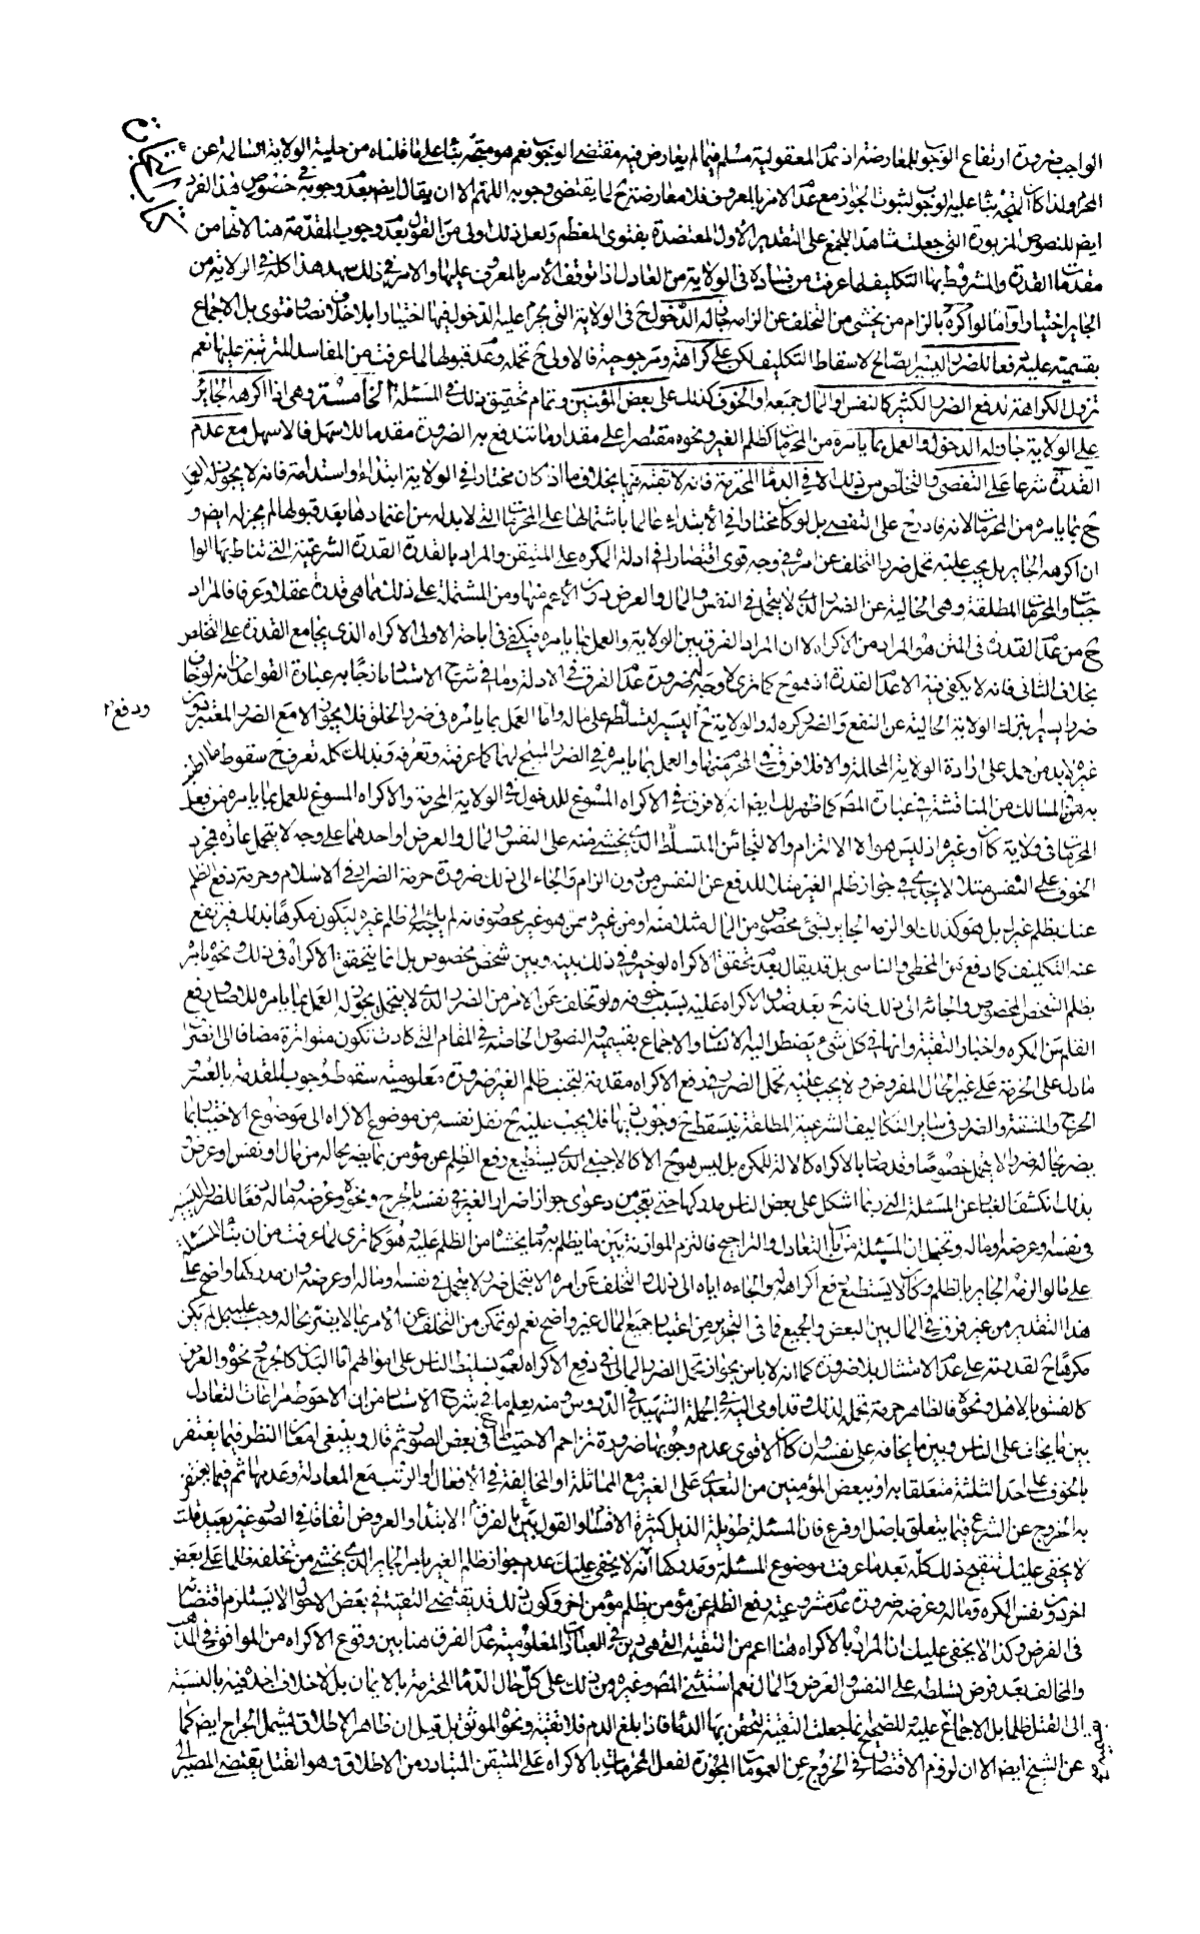 الواجب ضرورة ارتفاع الوجوب للمعارضة اذ عدم المعقولية مسلم فيما لم يعارض فيه مقتضى الوجوب نعم هو متجه بناء على ما قلناه من حلية الولاية السالمة عن
المحرم ولذا كان المتجه بناء عليه الوجوب لثبوت الجواز مع عدم الامر بالمعروف فلا معارضة ح لما يقتضى وجوبه اللهم الا ان يقال ايض بعدم وجوبه في خصوص هذا الفرد
ايض للنصوص المزبورة التي جعلت شاهدا للجمع على التقدير الاول المعتضدة بفتوى المعظم ولعل ذلك اولى من القول بعدم وجوب المقدمة هنا لانها من
مقدمات القدرة والمشروط بها التكليف لما عرفت من فساده في الولاية من العادل اذا توقف الامر بالمعروف عليها والامر في ذلك سهل هذا كله في الولاية من
الجاير اختيارا واما لو اكره بالزام من يخشى من التخلف عن الزامه جاز له الدخول ح في الولاية التي يحرم عليه الدخول فيها اختيارا بلا خلاف نصا وفتوى بل الاجماع
بقسميه عليه دفعا للضرر اليسير الصالح لاسقاط التكليف لكن على كراهة ومرجوحية فالاولى ح تحمله وعدم قبولها لما عرفت من المفاسد المترتبة عليها نعم
تزول الكراهة لدفع الضرر الكثير كالنفس او المال جميعه او الخوف كذلك على بعض المؤمنين وتمام تحقيق ذلك في المسئلة الخامسة وهي اذا اكرهه الجائر
على الولاية جاز له الدخول والعمل بما يامره من المحرمات كظلم الغير ونحوه مقتصرا على مقدار ما تندفع به الضرورة مقدما للاسهل فالاسهل مع عدم
القدرة شرعا على التفصي والتخلص من ذلك الا في الدماء المحترمة فانه لا تقية فيها بخلاف ما اذا كان مختارا في الولاية ابتداء واستدامة فانه لا يجوز له
ح بما يامره من المحرمات لانه قادر ح على التفصي بل لو كان مختارا في الابتداء عالما باشتمالها على المحرمات التي لا بد له من اعتمادها بعد قبولها لم يجز له ايض و
ان اكرهه الجاير بل يجب عليه تحمل ضرر التخلف عن امره في وجه قوى اقتصارا في ادلة المكره على المتيقن والمراد بالقدرة القدرة الشرعية التي تناط بها الوا
جبات والمحرمات المطلقة وهي الخالية عن الضرر الذي لا يتحمل في النفس والمال والعرض دون الاعم منها ومن المشتملة على ذلك مما هي قدرة عقلا وعرفا فالمراد
ح من عدم القدرة في المتن هو المراد من الاكراه لا ان المراد الفرق بين الولاية والعمل بما يامره فيكفي في اباحة الاولى الاكراه الذي يجامع القدرة على التخلص
بخلاف الثاني فانه لا يكفي فيه الا عدم القدرة اذ هو ح كما ترى لا وجه له ضرورة عدم الفرق في الادلة وما في شرح الاستاد مازجا به عبارة القواعد من انه لو خاف
ضررا يسيرا بترك الولاية الخالية عن النفع والضرر كره له والولاية ح اليسير لتسلط على ماله واما العمل بما يامره في ضرر الخلق فلا يجوز الا مع الضرر المعتبر
ودفع ٢
غيره لا بد من حمله على ارادة الولاية المحللة والا فلا فرق في المحرمة منها والعمل بما يامره في الضرر المبيح لهما كما عرفته وتعرفه وبذلك كله تعرف ح سقوط ما
به في المسالك من المناقشة في عبارة المصنف كما ظهر لك ايضا انه لا فرق في الاكراه المسوغ للدخول في الولاية المحرمة والاكراه المسوغ للعمل بما يامره من فعل
المحرمات في ولاية كان او غيره اذ ليس هو الا الالتزام والالجاء من المتسلط الذي يخشى منه على النفس والمال والعرض او احدهما على وجه لا يتحمل عادة فمجرد
الخوف على النفس مثلا لا يجدى في جواز ظلم الغير مثلا للدفع عن النفس من دون الزام والجاء الى ذلك ضرورة حرمة الضرار في الاسلام وحرمة دفع الظلم
عنك بظلم غيرك بل هو كذلك لو الزمه الجاير بشئ مخصوص من المال مثلا منه او من غيره ممن هو غير مخصوص فانه لم يلجئه الى ظلم غيره ليكون مكرها بذلك فيرتفع
عنه التكليف كما دفع عن المخطى والناسى بل قد يقال بعدم تحقق الاكراه لو خيره في ذلك بينه وبين شخص مخصوص بل انما يتحقق الاكراه في ذلك ونحوه بامره
بظلم الشخص المخصوص والجائه الى ذلك فانه ح بعد صدق الاكراه عليه بسبب خوفه ولو تخلف عن الامر من الضرر الذي لا يتحمل يجوز له العمل بما يامره للاصل ورفع
القلم عن المكره واخبار التقية وانها في كل شئ يضطر اليه الانسان والاجماع بقسميه والنصوص الخاصة في المقام التي كادت تكون متواترة مضافا الى انصراف
ما دل على الحرمة على غير الحال المفروض ولا يجب عليه تحمل الضرر في دفع الاكراه مقدمة لتجنب ظلم الغير ضرورة معلومية سقوط وجوب المقدمة بالعسر و
الحرج والمشقة والضرر في ساير التكاليف الشرعية المطلقة فيسقط ح وجوب ذيها فلا يجب عليه ح نقل نفسه من موضوع الاكراه الى موضوع الاختيار بما
يضر بحاله ضررا لا يتحمل خصوصا وقد صار بالاكراه كالالة للمكره بل ليس هو ح الا كالاجنبي الذي يستطيع رفع الظلم عن مؤمن بما يضر بحاله من مال او نفس او عرض
بذلك انكشف الغبار عن المسئلة التي ربما اشكل على بعض الناس مدركها حتى تعجب من دعوى جواز اضرار الغير في نفسه بالجرح ونحوه وعرضه وماله دفعا للضرر اليسير
في نفسه وعرضه او ماله وتخيل ان المسئلة من باب التعادل والتراجيح فالتزم الموازنة بين ما يظلم به وما يخشاه من الظلم عليه وهو كما ترى لما عرفت من ان بناء المسئلة
على ما لو الزمه الجاير بالظلم وكان لا يستطيع رفع اكراهه له والجاءه اياه الى ذلك التخلف عن امره الا بتحمل ضرر لا يتحمل في نفسه وماله او عرضه وان مدركها واضح على
هذا التقدير من غير فرق في المال بين البعض والجميع فما في التحرير من اعتبار جميع المال غير واضح نعم لو تمكن من التخلف عن الامر بما لا يضر بحاله وجب عليه بل لم يكن
مكرها ح لقدرته على عدم الامتثال بلا ضرورة كما انه لا باس بجواز تحمل الضرر المالي في دفع الاكراه لعموم تسليط الناس على اموالهم اما البدن كالجرح ونحوه والعرض
كالفسق بالاهل ونحوه فالظاهر حرمة تحمله لذلك وقد اومى اليه في الجملة الشهيد في الدروس ومنه يعلم ما في شرح الاستاد من ان الاحوط مراعات التعادل
بين ما يخاف على الناس وبين ما يخافه على نفسه وان كان الاقوى عدم وجوبها ضرورة تزاحم الاحتياط ح في بعض الصور ثم قال وينبغى امعان النظر فيما يغتفر
بالخوف على احد الثلثة متعلقا به او ببعض المؤمنين من التعدى على الغير مع المماثلة او المخالفة في الافعال او الرتب مع المعادلة وعدمها ثم فيما يغتفر
به الخروج عن الشرع فيما يتعلق باصل او فرع فان المسئلة طويلة الذيل كثيرة الاقسام والقول بين بالفرق الابتداء والعروض اتفاقا في الصور غير بعيد قلت
لا يخفى عليك تنقيح ذلك كله بعد ما عرفت موضوع المسئلة ومدركها انه لا يخفى عليك عدم جواز ظلم الغير بامر الجاير الذي يخشى من تخلفه ظلما على بعض
اخر دون نفس المكره وماله وعرضه ضرورة عدم مشروعية رفع الظلم عن مؤمن بظلم مؤمن اخر وكون ذلك قد يقتضى التقية في بعض الاحوال لا يستلزم اقتضائه
في الفرض وكذا لا يخفى عليك ان المراد بالاكراه هنا اعم من التقية التي هي دين في العبادات المعلومية عدم الفرق هنا بين وقوع الاكراه من الموافق في المذهب
والمخالف بعد فرض تسلطه على النفس والعرض والمال نعم استثنى المصنف وغيره من ذلك على كل حال الدماء المحترمة بالايمان بلا خلاف اجده فيه بالنسبة
الى القتل ظلما بل الاجماع بقسميه عليه وللصحيح انما جعلت التقية لتحقن بها الدماء فاذا بلغ الدم فلا تقية ونحوه الموثق بل قيل ان ظاهر الاطلاق ليشمل الجراح ايض كما
عن الشيخ ايض الا ان لزوم الاقتصار في الخروج عن العمومات المجوزة لفعل المحرمات بالاكراه على المتيقن المتبادر من الاطلاق وهو القتل يقتضى المصير الى